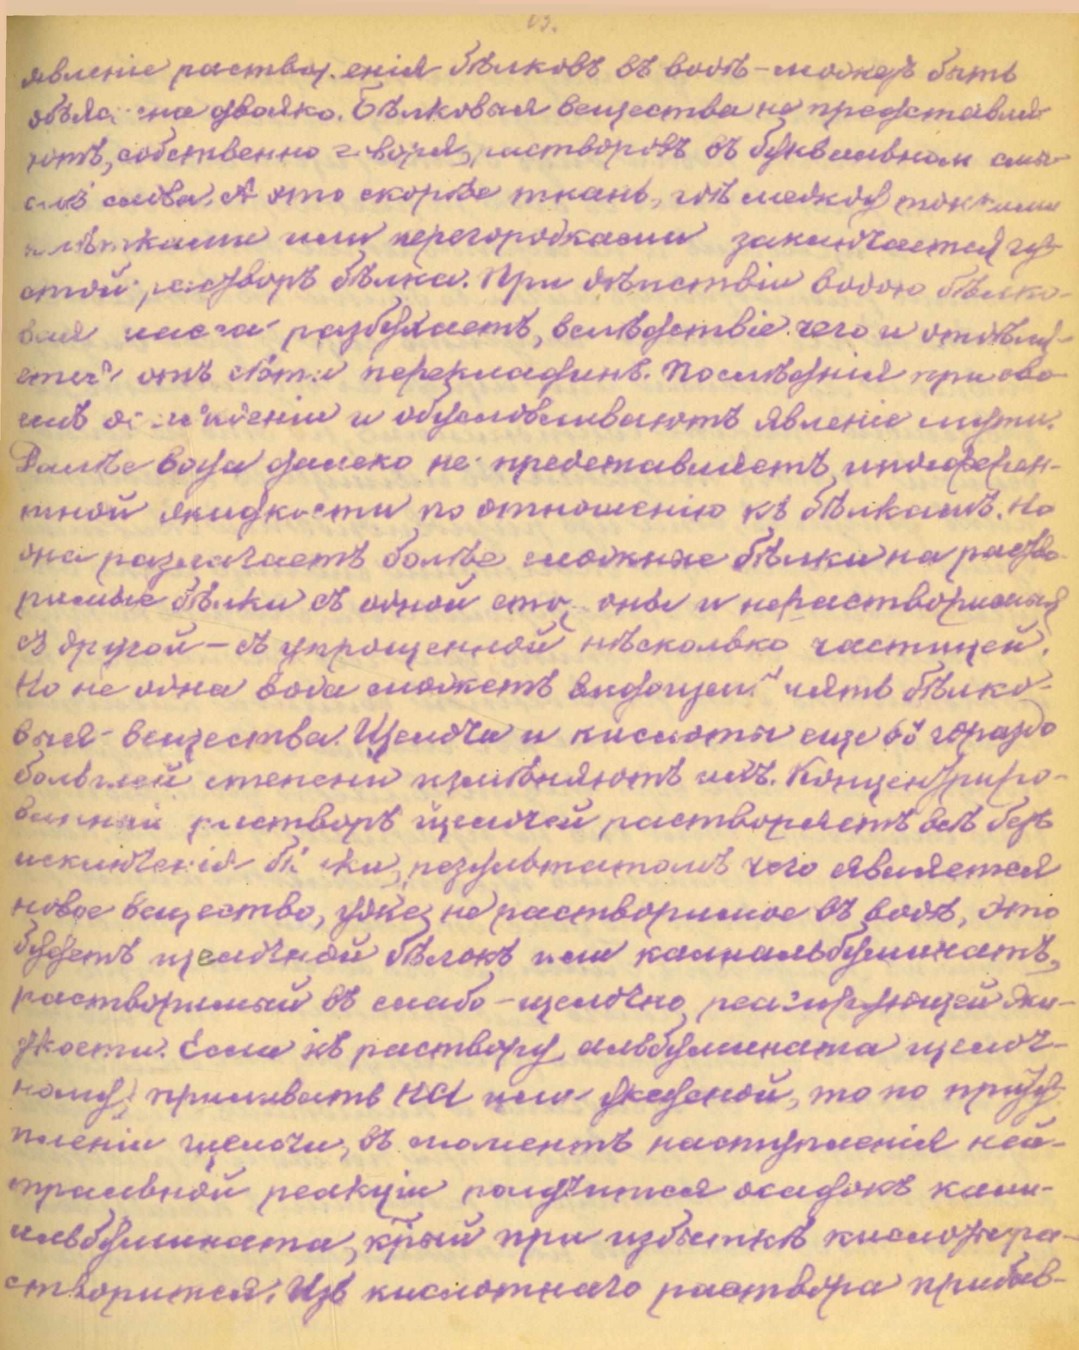 явленіе растворенія бѣлковъ въ водѣ – можетъ быть
объяснено двояко. Бѣлковыя вещества не представля-
ютъ, собственно говоря, растворовъ въ буквальномъ смы-
слѣ слова. А это скорѣе ткань, гдѣ между тонкими
клѣтками или перегородками заключается гу-
стой растворъ бѣлка. При дѣйствіи водою бѣлко-
вая масса разбухаетъ, вслѣдствіе чего и отдѣляе-
отъ сѣти перекладинъ. Послѣднія при
и обусловливаютъ явленіе мути.
Далѣе вода далеко не представляетъ индеферен-
тной жидкости по отношенію къ бѣлкамъ. Но
она разлагаетъ болѣе сложные бѣлки на раство-
римые бѣлки съ одной стороны и нерастворимый
съ другой – съ упрощенной нѣсколько частицей.
Но не одна вода можетъ видоизмѣнять бѣлко-
выя вещества. Щелочи и кислоты еще въ гораздо
большей степени измѣняютъ ихъ. Концентриро-
ванный растворъ щелочей растворяетъ всѣ безъ
исключенія бѣлки, результатомъ чего является
новое вещество, уже не растворимое въ водѣ, это
будетъ щелочной бѣлокъ или калиальбуминатъ,
растворимый въ слабо-щелочно реагирующей жи-
дкости. Если къ раствору альбумината щелоч-
ному приливать HCl или уксусной, то по приту-
пленіи щелочи, въ моментъ наступленія ней-
тральной реакціи получится осадокъ кали-
альбумината, к̃рый при избыткѣ кислоты ра-
створится. Изъ кислотнаго раствора прибав-